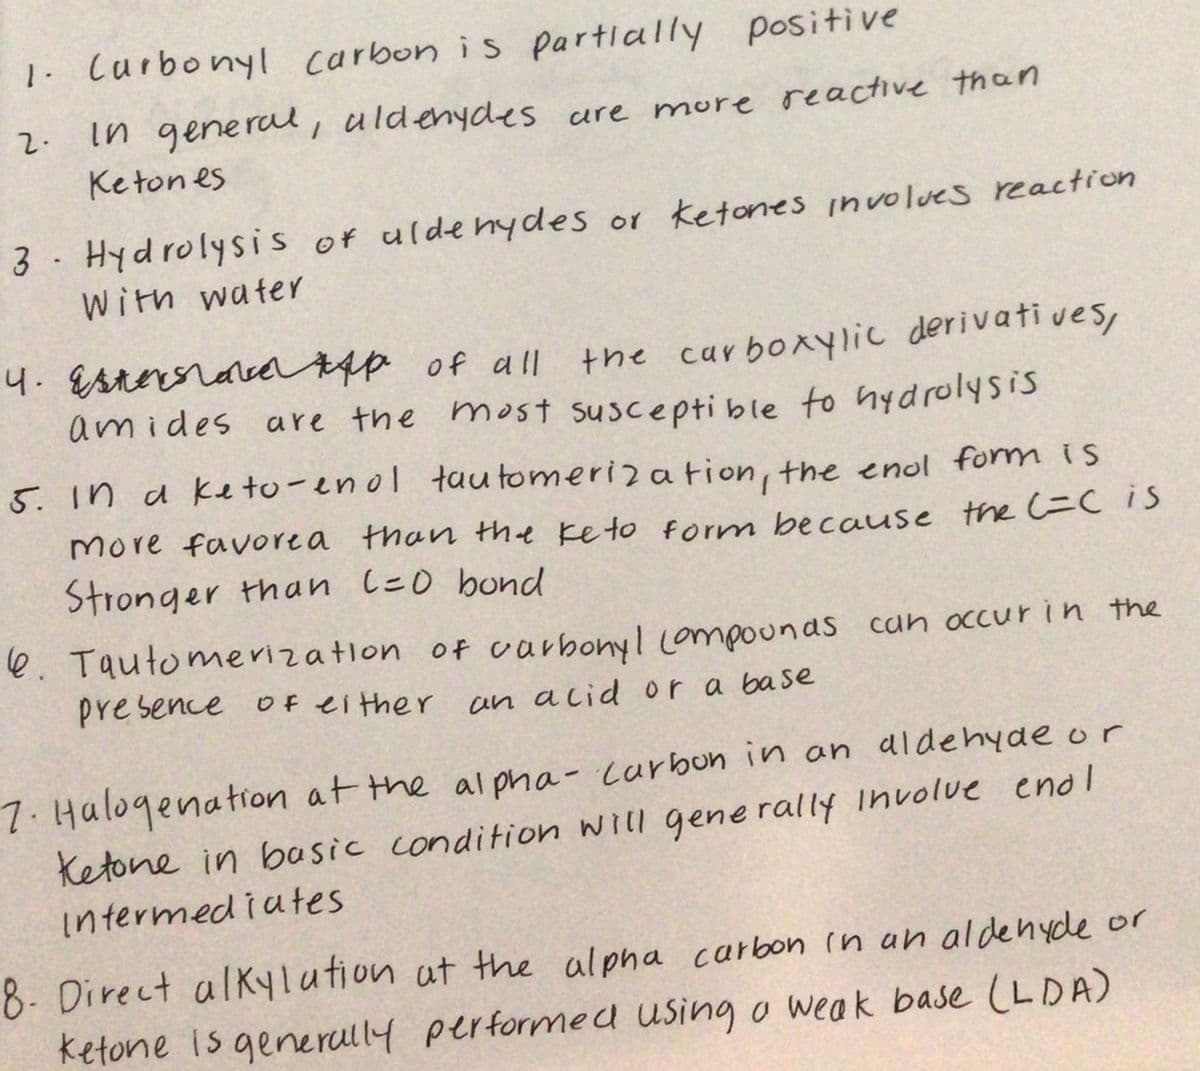 1. Carbonyl carbon is partially positive
2. In general, aldehydes are more reactive than
Ketones
3. Hydrolysis of aldehydes or ketones involves reaction
With water
4. of all the carboxylic derivatives,
amides are the most susceptible to hydrolysis
5. In a keto-enol tautomerization, the enol form is
more favored than the keto form because the C=C is
Stronger than C=O bond
6. Tautomerization of carbonyl compounds can occur in the
presence of either an acid or a base
7. Halogenation at the alpha-carbon in an aldehyde or
Ketone in basic condition will generally involve enol
intermediates
8. Direct alkylation at the alpha carbon in an aldehyde or
ketone is generally performed using a weak base (LDA)